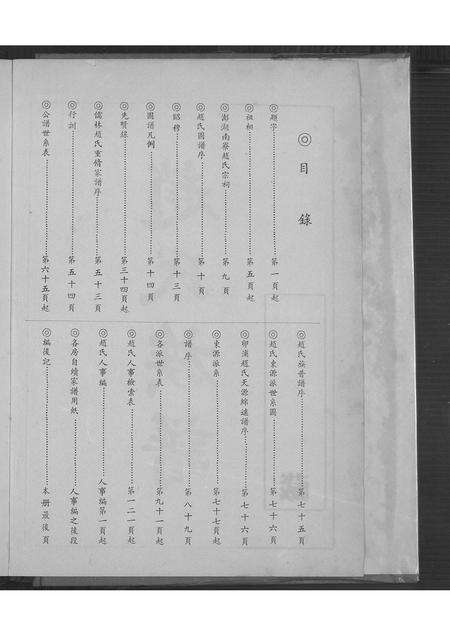 ◎目錄
◎題字……第一頁起
◎祖相……第五頁起
◎澎湖南寮趙氏宗祠……第九頁
◎趙氏團譜序……第十頁
◎昭穆……第十三頁
◎團譜凡例……第十四頁
◎先明錄……第三十四頁起
◎儒林趙氏重修家譜序……第五十三頁
◎行訓……第五十四頁
◎公譜世系表……第六十五頁起
◎趙氏族普譜序……第七十五頁
◎趙氏東源派世系圖……第七十六頁起
◎印浦趙氏天源綿遠譜序……第七十六頁
◎東源派系……第七十七頁起
◎譜序……第八十九頁
◎各派世系表……第九十一頁起
◎趙氏人事檢索表……第一二一頁起
◎趙氏人事編……人事編第一頁起
◎各房自續家譜用紙……人事編之後段
◎編後記……本册最後頁